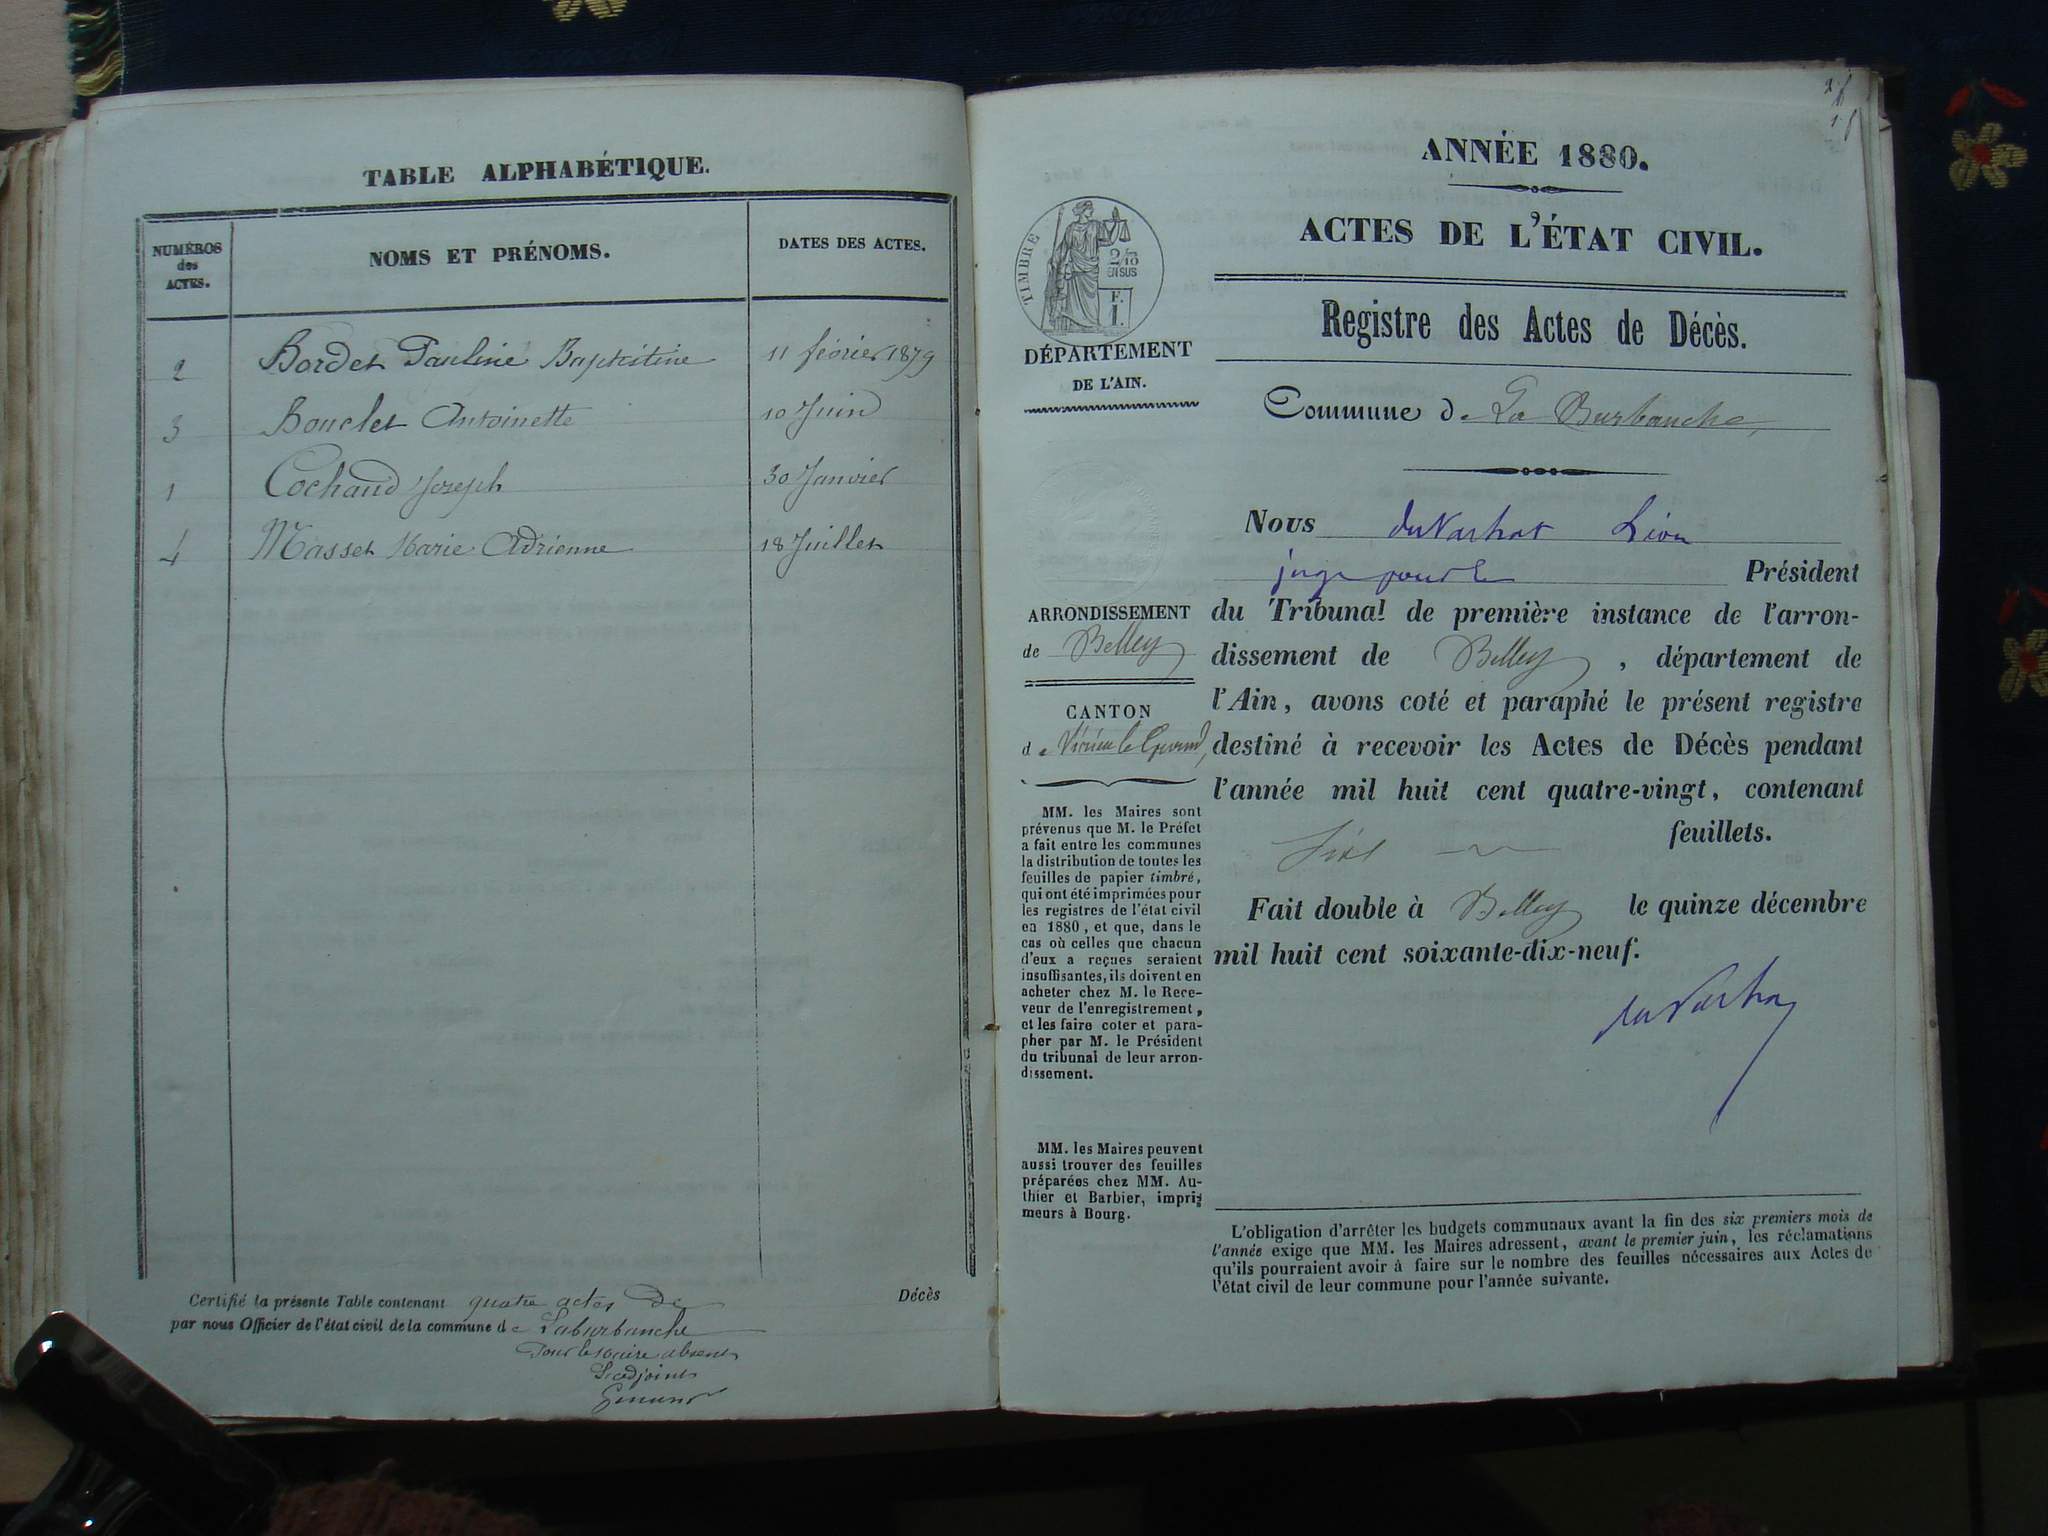 TABLE ALPHABÉTIQUE.
NUMÉROS
des
ACTES.
NOMS ET PRÉNOMS.
DATES DES ACTES.
2 Bordet Pauline Baptistine 11 février 1879
3 Bouclet Antoinette 10 Juin
1 Cochaud Joseph 30 Janvier
4 Masset Marie Adrienne 18 Juillet
Certifié la présente Table contenant quatre actes de Décès
par nous Officier de l'état civil de la commune de Laburbanche
Pour le maire absent
L'adjoint
ANNÉE 1880.
ACTES DE L'ÉTAT CIVIL.
Registre des Actes de Décès.
TIMBRE
2/10
EN SUS
F.
1.
DÉPARTEMENT
DE L'AIN.
Commune de La Burbanche,
Nous Léon
juge pour le Président
du Tribunal de première instance de l'arron-
dissement de Belley, département de
l'Ain, avons coté et paraphé le présent registre
destiné à recevoir les Actes de Décès pendant
l'année mil huit cent quatre-vingt, contenant
feuillets.
Fait double à Belley le quinze décembre
mil huit cent soixante-dix-neuf.
ARRONDISSEMENT
de Belley
CANTON
de Virieu le Grand,
MM. les Maires sont
prévenus que M. le Préfet
a fait entre les communes
la distribution de toutes les
feuilles de papier timbré,
qui ont été imprimées pour
les registres de l'état civil
en 1880, et que, dans le
cas où celles que chacun
d'eux a reçues seraient
insuffisantes, ils doivent en
acheter chez M. le Rece-
veur de l'enregistrement,
et les faire coter et para-
pher par M. le Président
du tribunal de leur arron-
dissement.
MM. les Maires peuvent
aussi trouver des feuilles
préparées chez MM. Au-
thier et Barbier, impri-
meurs à Bourg.
L'obligation d'arrêter les budgets communaux avant la fin des six premiers mois de
l'année exige que MM. les Maires adressent, avant le premier juin, les réclamations
qu'ils pourraient avoir à faire sur le nombre des feuilles nécessaires aux Actes de
l'état civil de leur commune pour l'année suivante.